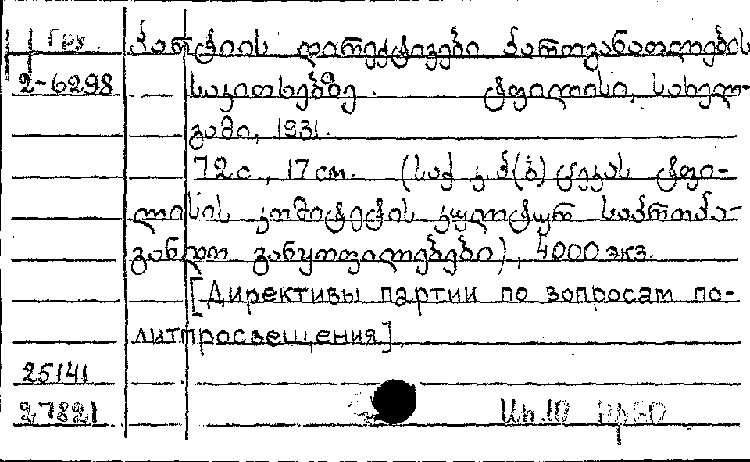 Гру. პარტიის დირექტივები პართგანათლების
2-6298 საკითხებზე. ტფილისი, სახელ-
გამი, 1931.
72 с., 17 см. (საქ. კ. პ(ბ) ცეკას ტფი-
ლისის კომიტეტის კულტურ საპროპა-
განდო განყოფილებები), 4000 экз.
[Директивы партии по вопросам по-
литпросвещения]
25141
27821